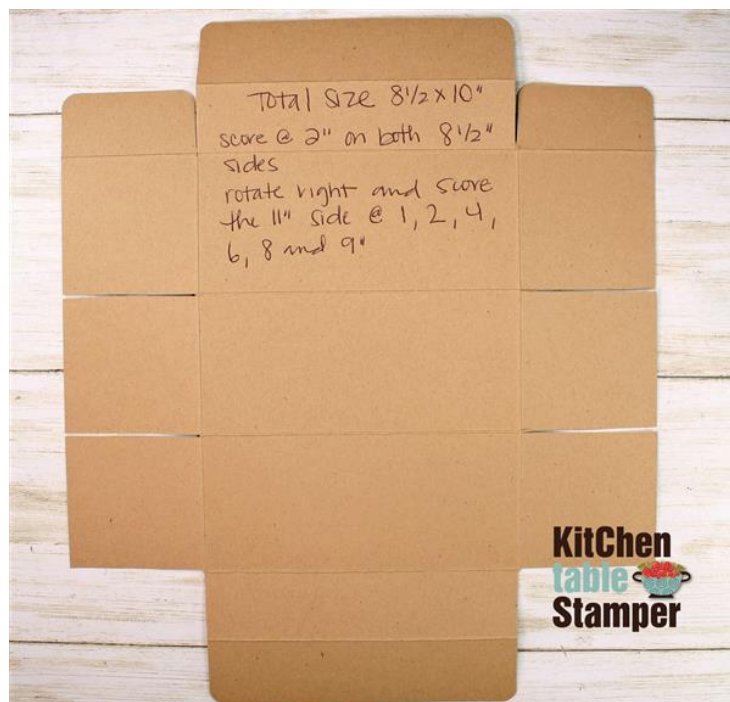 Total size 8 1/2 x 10"
score @ 2" on both 8 1/2"
sides
rotate right and score
the 11" side @ 1, 2, 4,
6, 8 and 9"
KitChen
table
Stamper